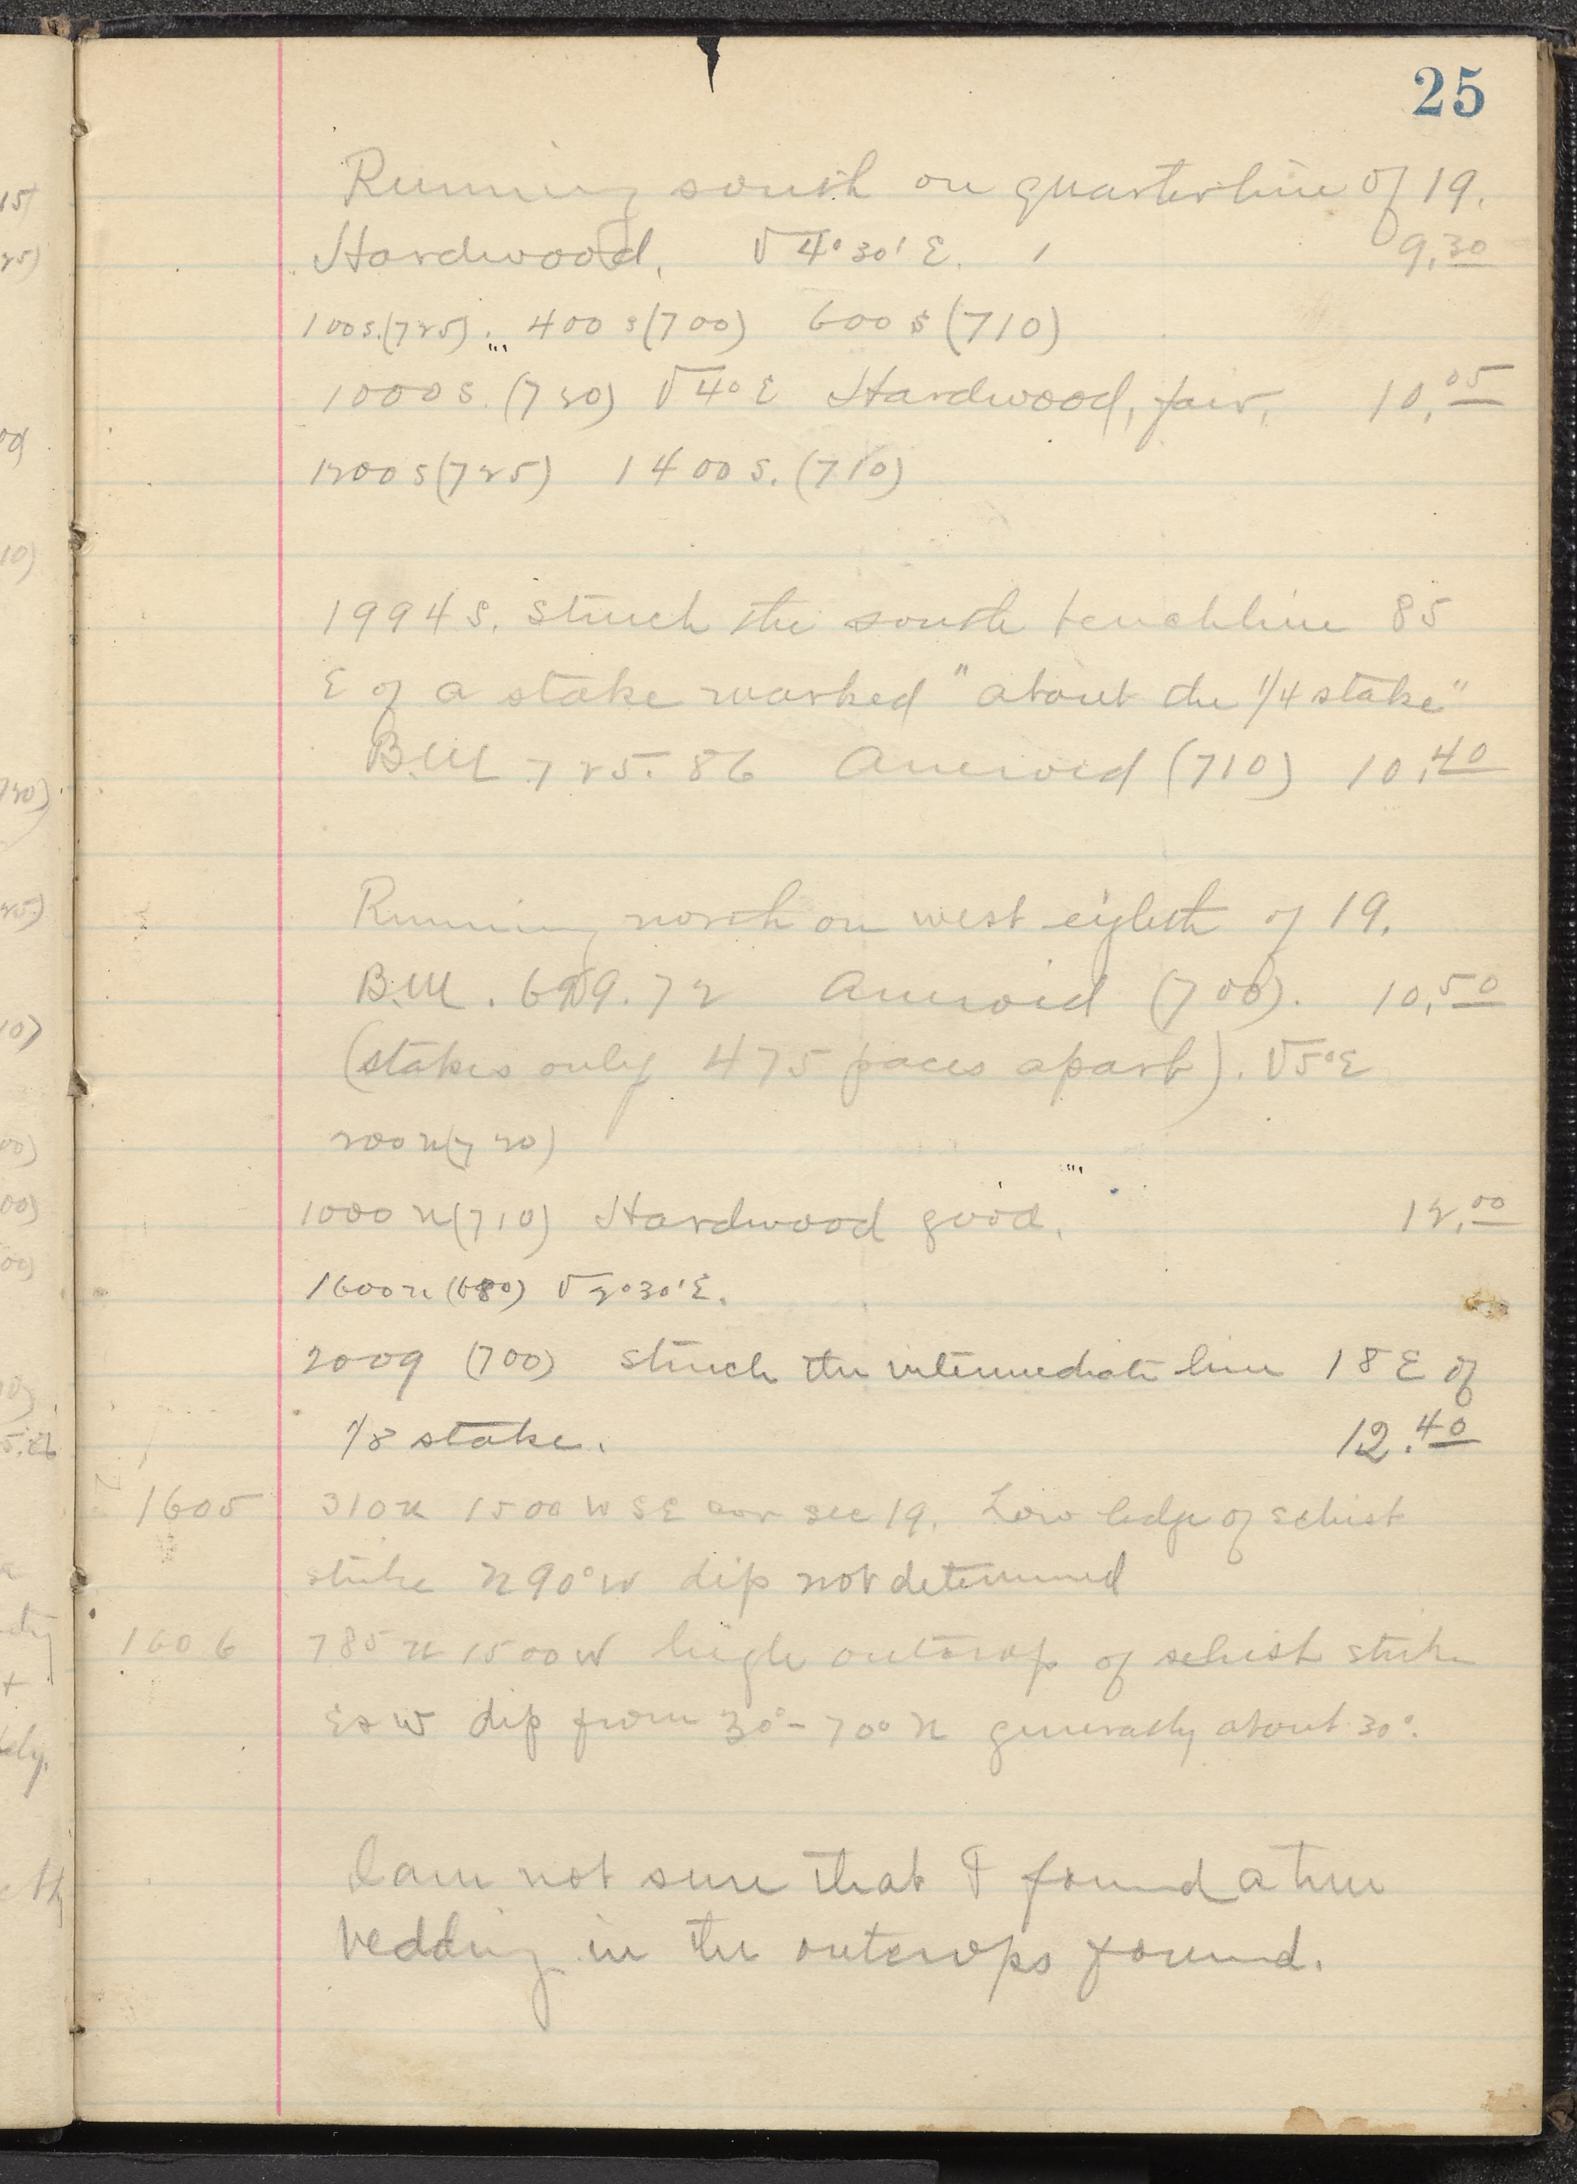 25
Running south on quarterline of 19.
Hardwood. V 4° 30' E. 9.30
100 s. (725). 400 s (700) 600 s (710)
1000 s. (720) V 4° E Hardwood, fair. 10.05
1200 s (725) 1400 s. (710)
1994 s. struck the south benchline 85
E of a stake marked "about the 1/4 stake"
B.M. 725.86 Aneroid (710) 10.40
Running north on west eighth of 19.
B.M. 699.72 Aneroid (700). 10.50
(stakes only 475 paces apart). V 5° E
200 n (720)
1000 n (710) Hardwood good. 12.00
1600 n (680) V 2° 30' E.
2009 (700) struck the intermediate line 18 E of
1/8 stake. 12.40
1605 310 n 1500 W SE cor sec 19. Low ledge of schist
strike N 90° W dip not determined
1606 785 n 1500 W high outcrop of schist strike
E & W dip from 30° - 70° N generally about 30°.
I am not sure that I found a true
bedding in the outcrops found.